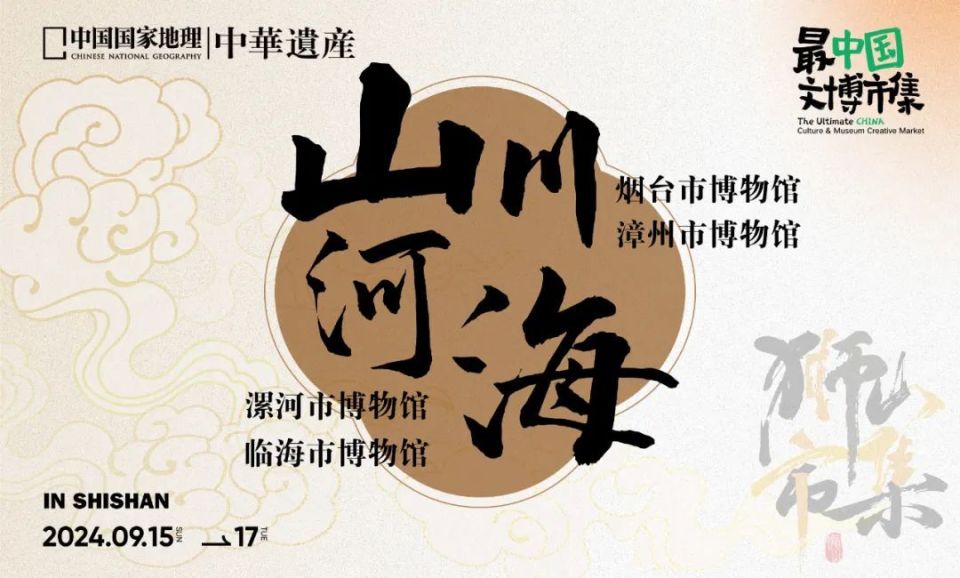 中国国家地理
CHINESE NATIONAL GEOGRAPHY
中華遺産
最中国
文博市集
The Ultimate CHINA
Culture & Museum Creative Market
山川
河海
烟台市博物馆
漳州市博物馆
漯河市博物馆
临海市博物馆
IN SHISHAN
2024.09.15 SUN — 17 TUE
狮山
市集